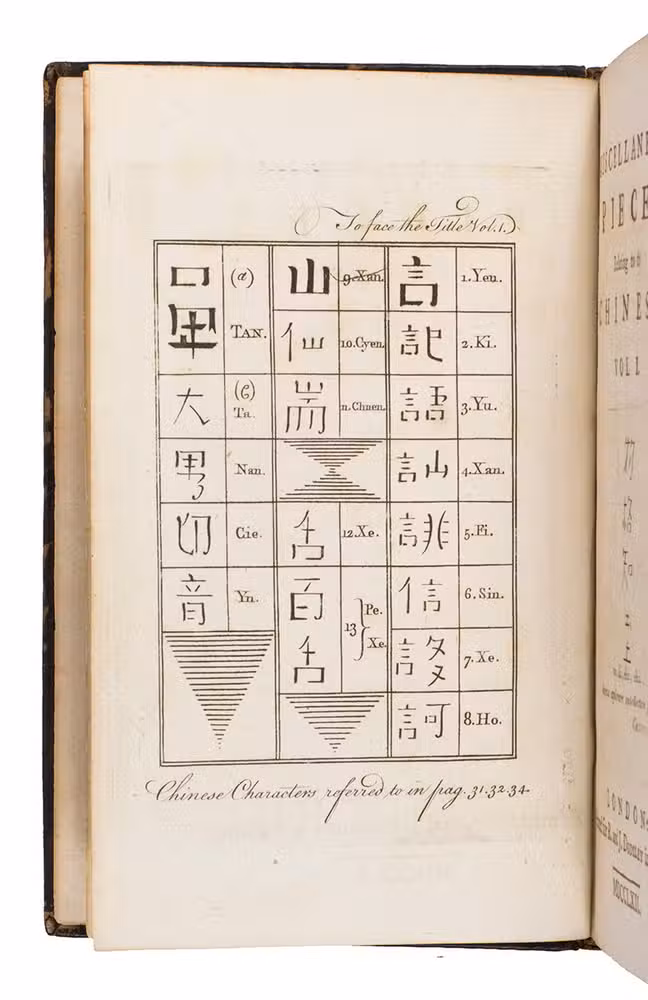 To face the Title Vol. 1.
言 1.Yen.
記 2.Ki.
語 3.Yu.
訕 4.Xan.
誹 5.Fi.
信 6.Sin.
7.Xe.
訶 8.Ho.
山 9.Xan.
仙 10.Cyen.
耑 11.Chuen.
舌 12.Xe.
13
百 Pe.
舌 Xe.
口 (a)
TAN.
大 Ta.
男 Nan.
切 Cie.
音 Yn.
Chinese Characters referred to in pag. 31.32.34.
PIECE
CHINES
VOL I
LONDON